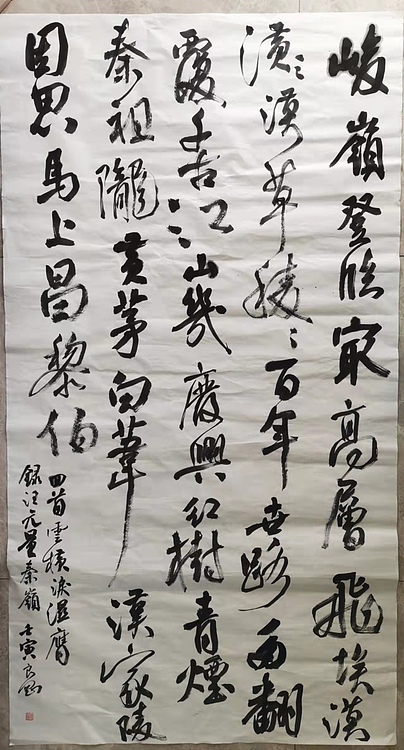 峻嶺登臨最高層飛埃漠
漠草稜〻百年世路多翻
覆千古江山幾廢興紅樹青煙
秦祖隴黃茅白葦漢家陵
因思馬上昌黎伯
回首雲橫淚濕膺
錄汪元量秦嶺 壬寅良